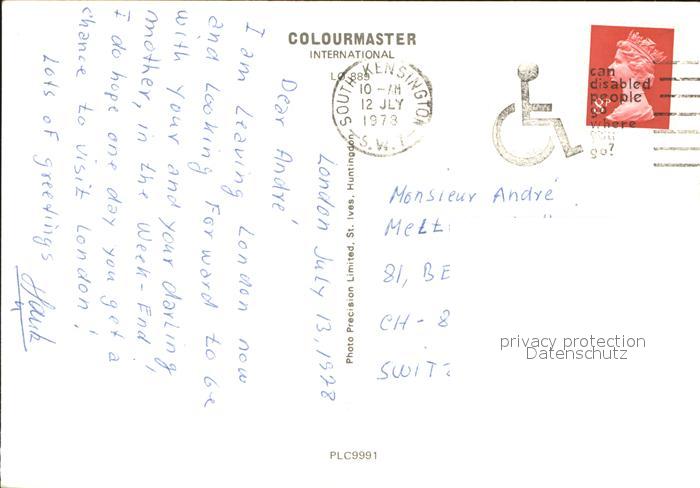 COLOURMASTER
INTERNATIONAL
LO 889
SOUTH KENSINGTON
10 - AM
12 JLY
1978
S.W.7
can
disabled
people
where
you
go?
London July 13, 1978
Dear André
I am leaving London now
and looking forward to be
with your and your darling
mother, in the Week-End!
I do hope one day you get a
chance to visit London!
Lots of greetings
Monsieur André
81, BE
CH - 8
SWITZ
privacy protection
Datenschutz
Photo Precision Limited, St. Ives, Huntingdon
PLC9991